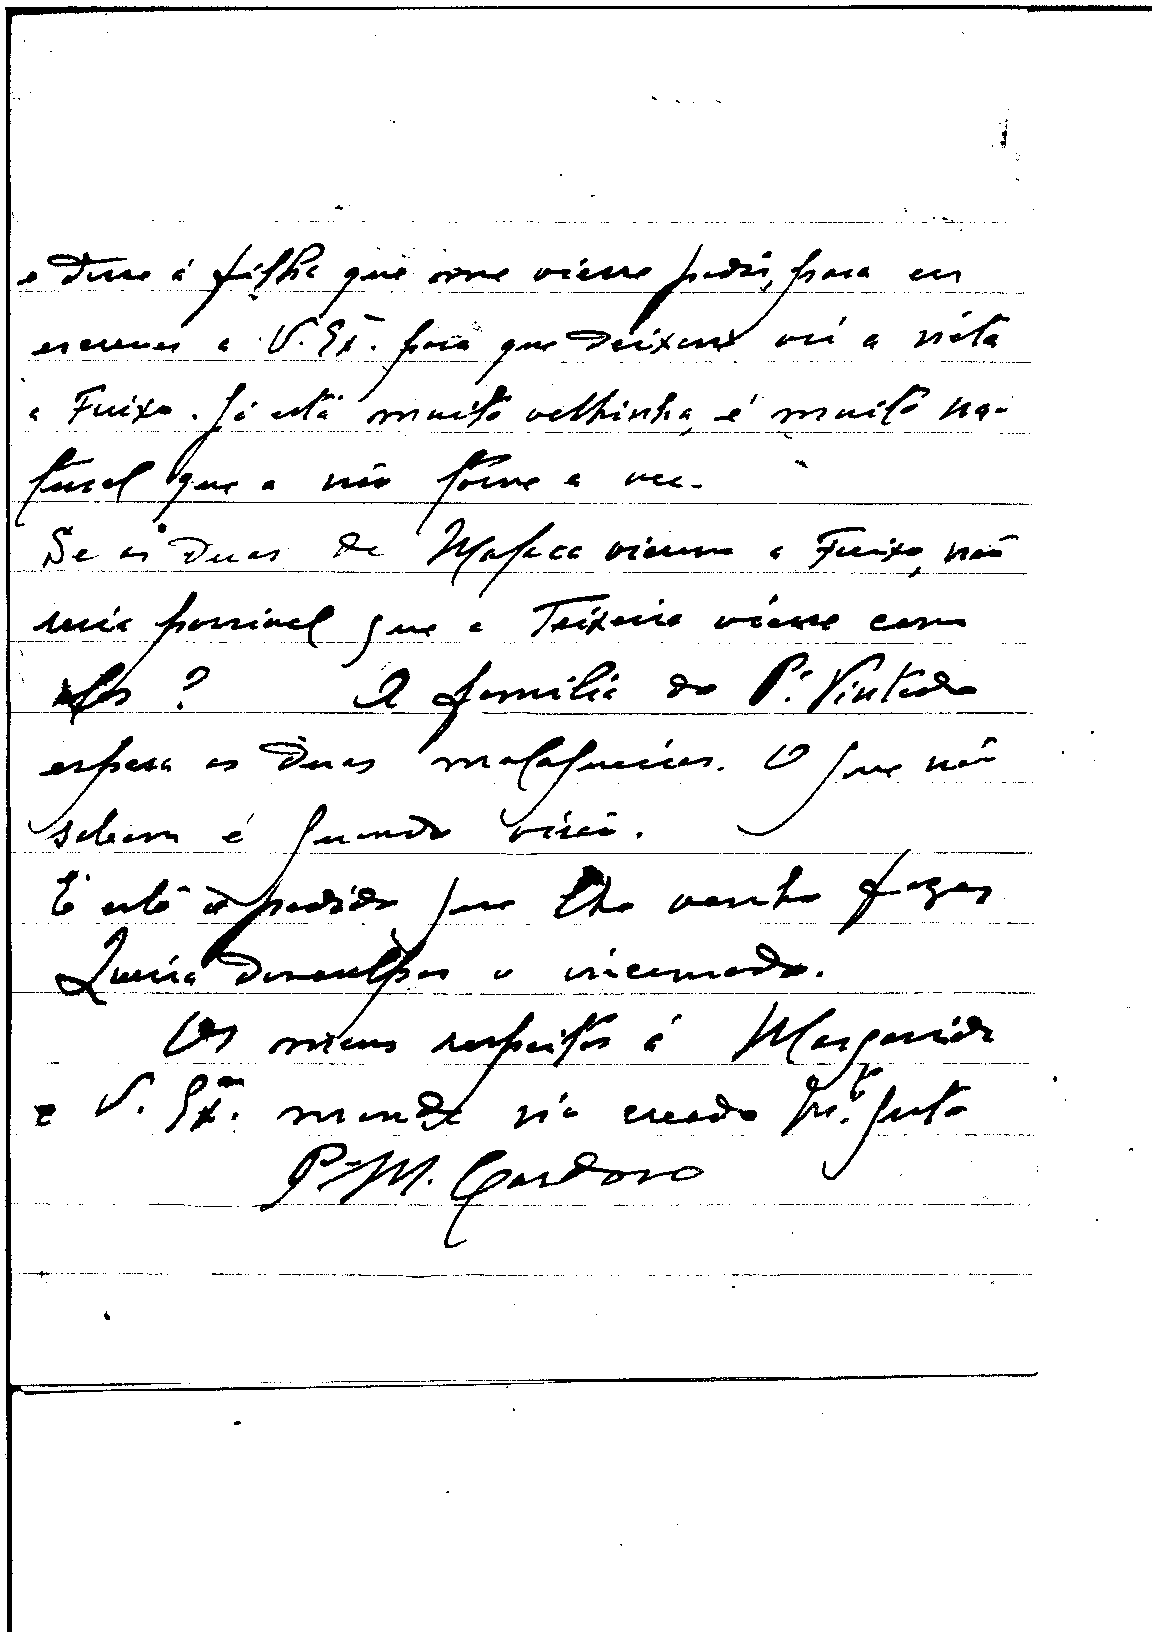 e disse á filha que me viesse pedir, para eu
escrever a V. Exª. para que deixasse vir a neta
a Freixo. Já está muito velhinha, é muito na-
tural que a não torne a ver.
Se as duas de Malaca vierem a Freixo, não
seria possivel que a Teixeira viesse com
elas? A familia do Pe. Pintado
espera as duas malaqueiras. O que não
sabem é quando virão.
É este o pedido que lhe venho fazer
Queira desculpar o incomodo.
Os meus respeitos á Margarida
e V. Exª. mande no creado Mto. grato
P. M. Cardoso